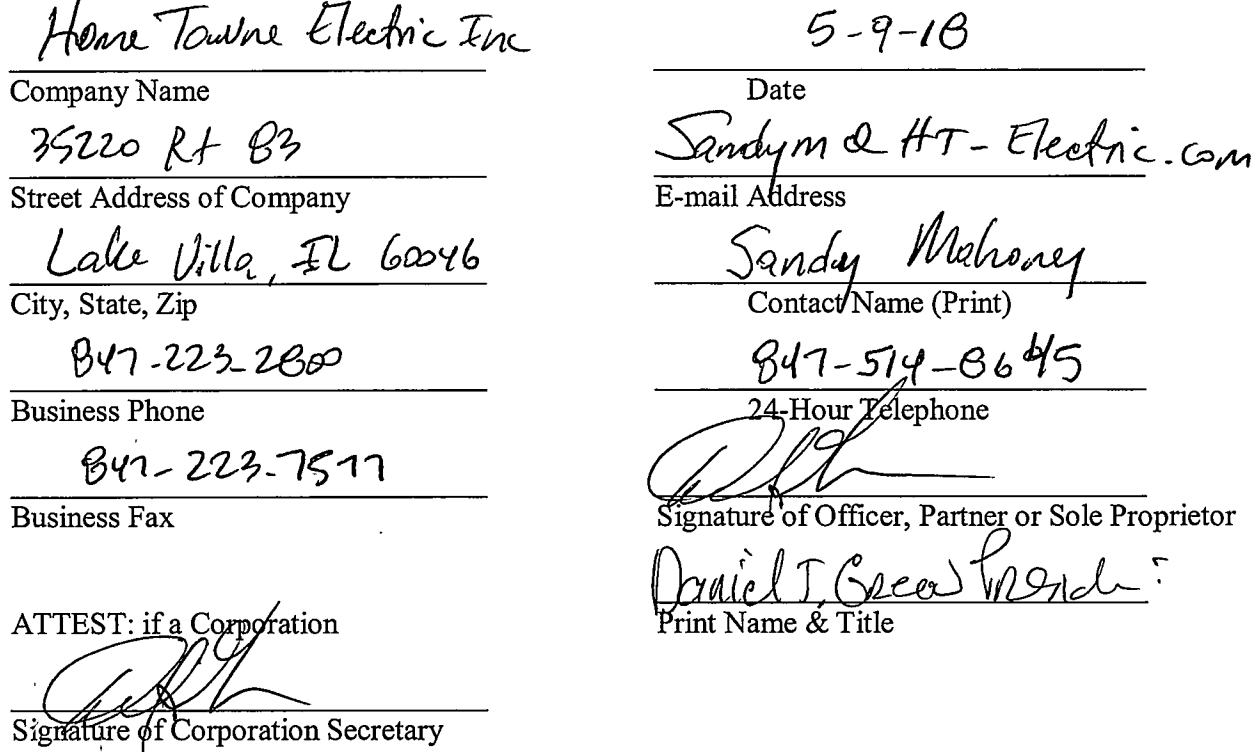 Home Towne Electric Inc
Company Name
35220 Rt 83
Street Address of Company
Lake Villa, IL 60046
City, State, Zip
847-223-2800
Business Phone
847-223-7577
Business Fax
ATTEST: if a Corporation
Signature of Corporation Secretary
5-9-18
Date
Sandym@HT-Electric.com
E-mail Address
Sandy Mahoney
Contact Name (Print)
847-514-8645
24-Hour Telephone
Signature of Officer, Partner or Sole Proprietor
Daniel J. Green
Print Name & Title